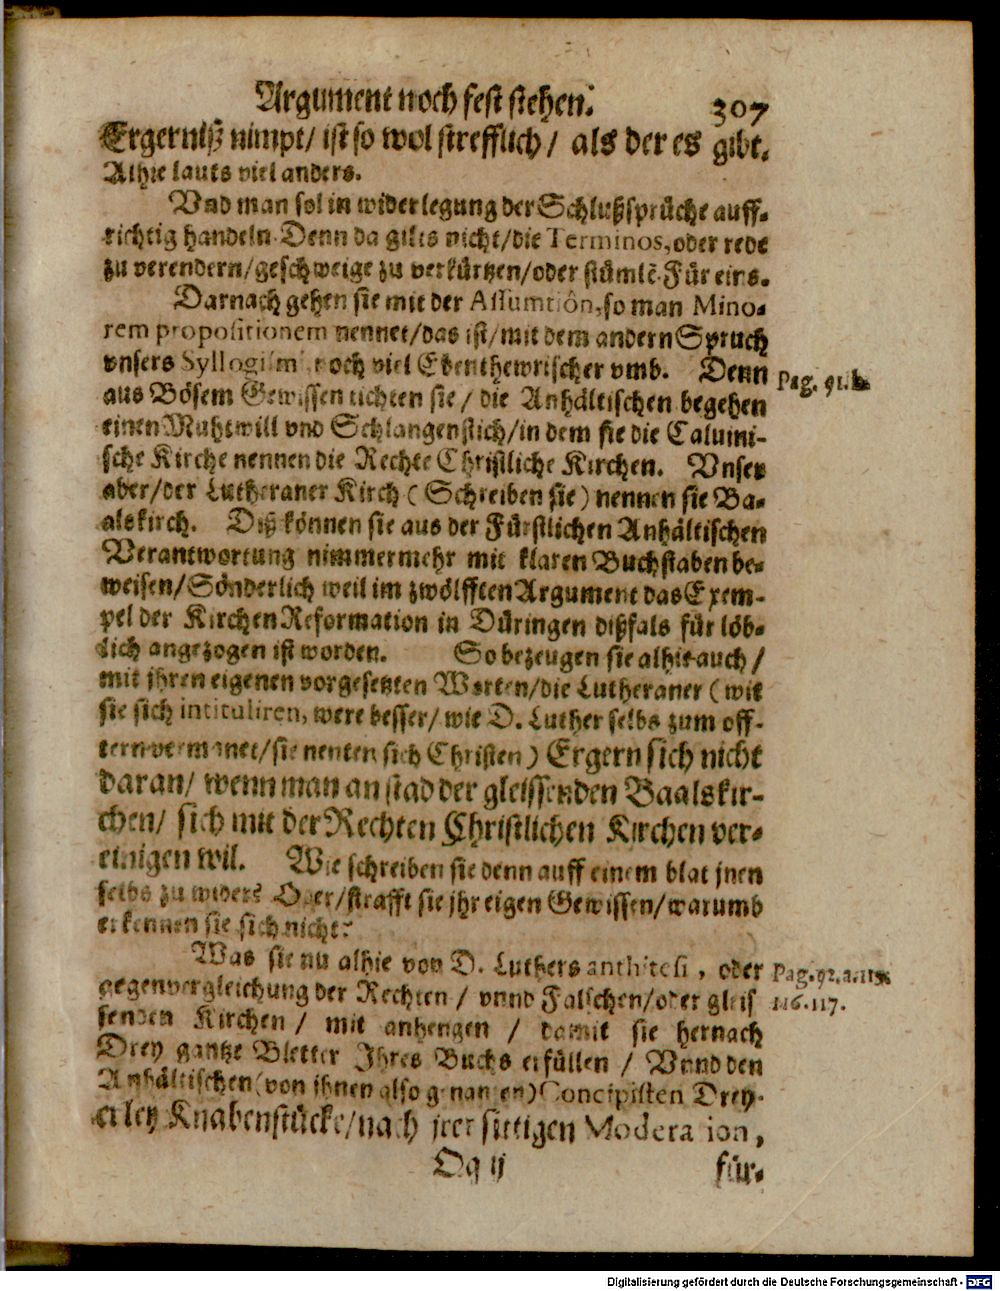 Argument noch fest stehen. 307
Ergerniß nimpt/ ist so wol strefflich/ als der es gibt.
Alhie lauts viel anders.
Vnd man sol in widerlegung der Schlußsprüche auff-
richtig handeln. Denn da gilts nicht/die Terminos, oder rede
zu verendern/geschweige zu verkürtzen/oder stümlē. Für eins.
Darnach gehen sie mit der Assumtion, so man Mino-
rem propositionem nennet/das ist/mit dem andern Spruch
vnsers Syllogismi noch viel Ebenthewrischer vmb. Denn
Pag. 91. b.
aus Bösem Gewissen tichten sie/ die Anhältischen begehen
einen Muhtwill vnd Schlangenstich/in dem sie die Caluini-
sche Kirche nennen die Rechte Christliche Kirchen. Vnser
aber/der Lutheraner Kirch (Schreiben sie) nennen sie Ba-
alskirch. Diß können sie aus der Fürstlichen Anhältischen
Verantwortung nimmermehr mit klaren Buchstaben be-
weisen/Sönderlich weil im zwölfften Argument das Exem-
pel der Kirchen Reformation in Düringen dißfals für löb-
lich angezogen ist worden. So bezeugen sie alhie auch/
mit jhren eigenen vorgesetzten Worten/die Lutheraner (wie
sie sich intituliren, were besser/ wie D. Luther selbs zum off-
tern vermanet/sie nenten sich Christen) Ergern sich nicht
daran/ wenn man an stad der gleissenden Baalskir-
chen/ sich mit der Rechten Christlichen Kirchen ver-
einigen wil. Wie schreiben sie denn auff einem blat jnen
selbs zu wider? Oder/strafft sie jhr eigen Gewissen/warumb
erkennen sie sich nicht?
Was sie nu alhie von D. Luthers anthitesi, oder
Pag. 92. a. 115.
gegenvergleichung der Rechten/ vnnd Falschen/oder gleis
116. 117.
senden Kirchen/ mit anhengen/ damit sie hernach
Drey gantze Bletter Ihres Buchs erfüllen/ Vnnd den
Anhältischen (von ihnen also genanten) Concipisten Drey-
erley Knabenstücke/nach jrer sittigen Moderation,
Qq ij
für-
Digitalisierung gefördert durch die Deutsche Forschungsgemeinschaft - DFG